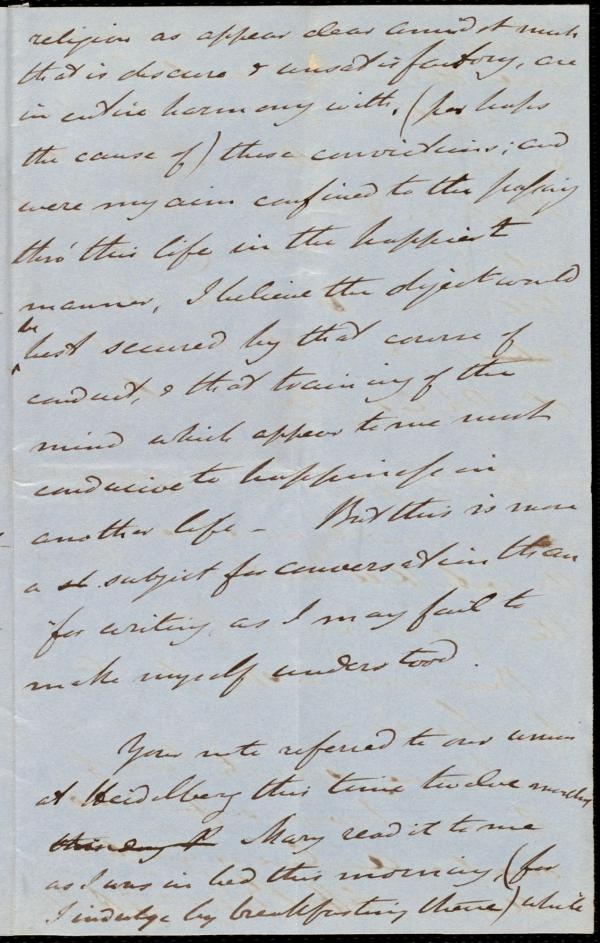 religion as appear clear amidst much
that is obscure & unsatisfactory, are
in entire harmony with, (perhaps
the cause of) these convictions; and
were my aim confined to the passing
thro' this life in the happiest
manner, I believe the object would
be best secured by that course of
conduct, & that training of the
mind which appear to me most
conducive to happiness in
another life - But this is more
a st subject for conversation than
for writing as I may fail to
make myself understood.
Your note referred to our
at Heidelberg this time twelve months
this day Mary read it to me
as I was in bed this morning, (for
I indulge by breakfasting there) while